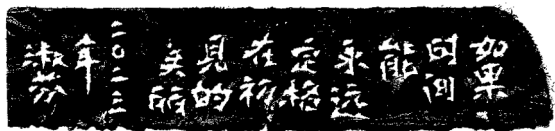 如果
时间
能
永远
定格
在初
见的
美丽
二〇一三
年
淑芬